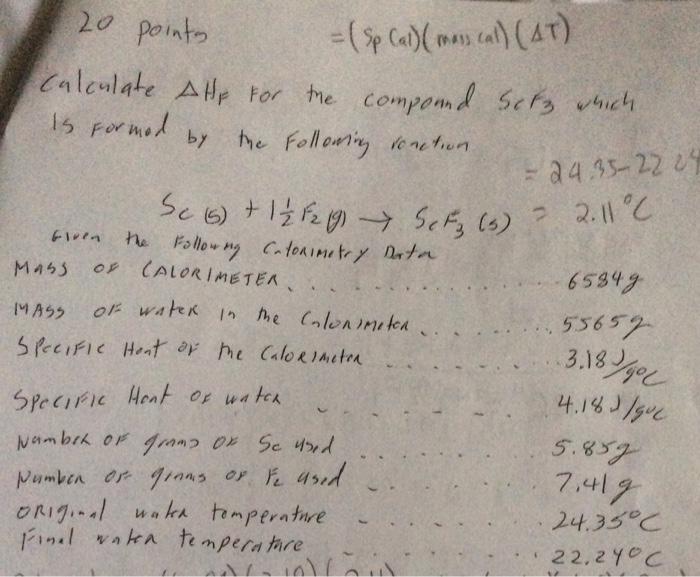 20 points =(Sp Cal)(mass cal)(ΔT)
Calculate ΔHF For the compound ScF3 which
Is Formed by the Following reaction
= 24.35-22.24
Sc (s) + 1 1/2 F2 (g) → ScF3 (s) = 2.11°C
Given the Following Calorimetry Data
MASS OF CALORIMETER. . . . . . . . 6584g
MASS OF water in the Calorimeter. . . . . . 5565g
Specific Heat of the Calorimeter . . . . . . 3.18J/g°C
Specific Heat Of water . . . . . . 4.18J/g°C
Number OF grams OF Sc used . . . . . . 5.85g
Number OF grams OF F2 used . . . . . . 7.41g
ORiginal water temperature . . . . . 24.35°C
Final water temperature . . . . . . 22.24°C